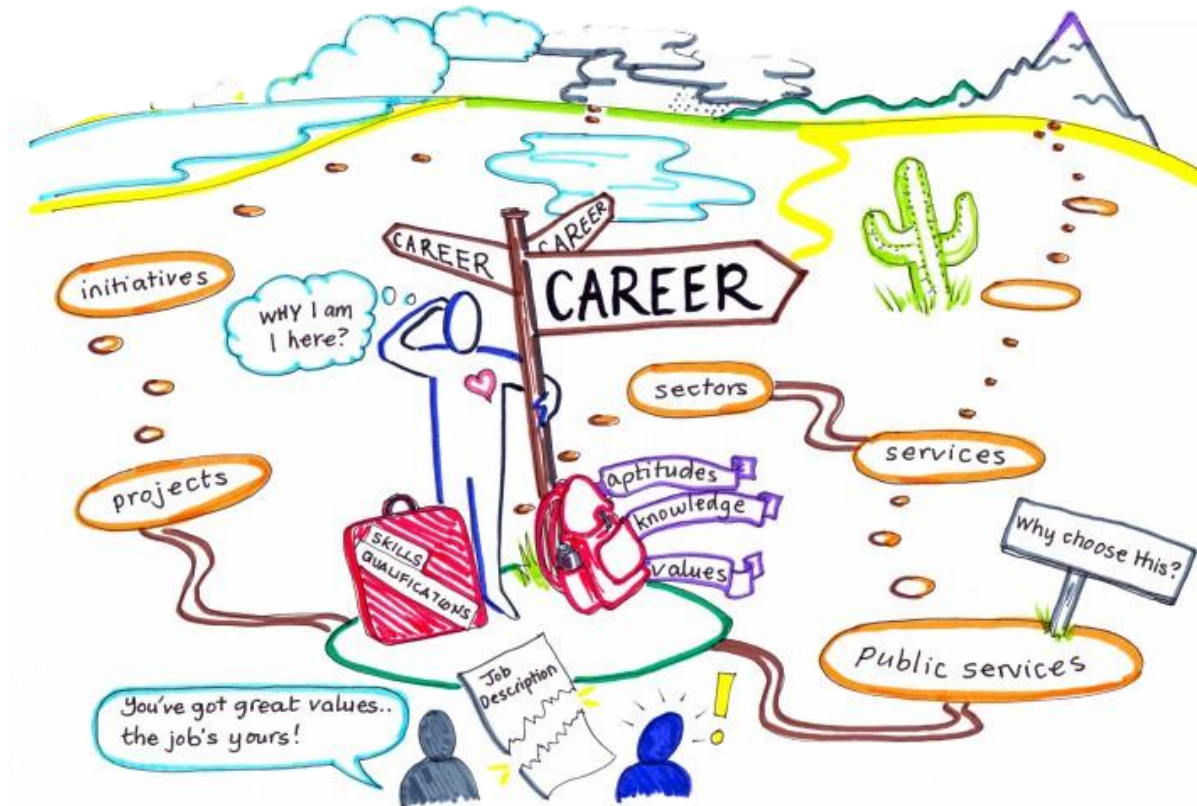 CAREER
CAREER
CAREER
initiatives
WHY I am
I here?
sectors
services
projects
aptitudes
knowledge
values
SKILLS
QUALIFICATIONS
Why choose this?
public services
Job
Description
You've got great values..
the job's yours!
!